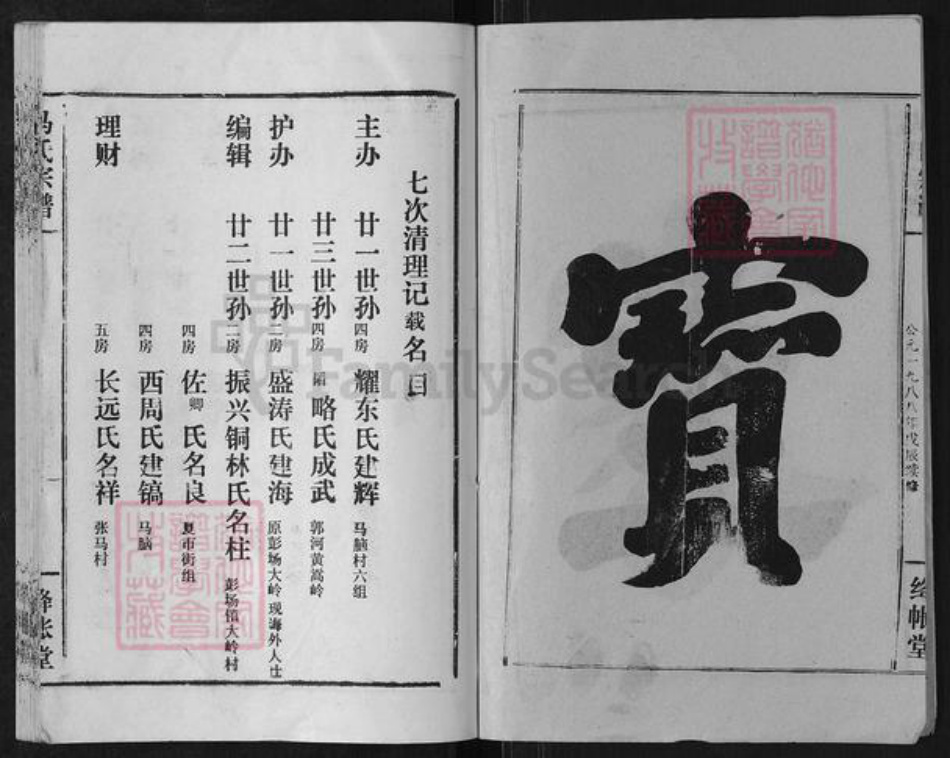 寳
公元一九八八年戊辰续修
绛帐堂
七次清理记载名目
主办 廿一世孙 四房 耀东氏建辉 马脑村六组
廿三世孙 四房 略氏成武 郭河黄嵩岭
护办 廿一世孙 二房 盛涛氏建海 原彭场大岭现海外人士
编辑 廿二世孙 二房 振兴铜林氏名柱 彭场镇大岭村
四房 佐卿氏名良 夏市街组
四房 西周氏建镐 马脑
理财 五房 长远氏名祥 张马村
冯氏宗谱
绛帐堂
FamilySearch